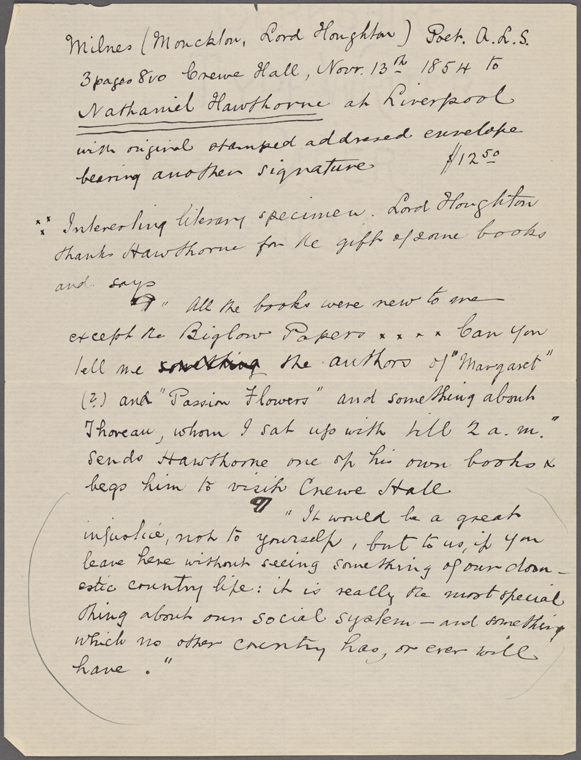 Milnes (Monckton, Lord Houghton) Poet. A.L.S.
3 pages 8vo Crewe Hall, Novr. 13th 1854 to
Nathaniel Hawthorne at Liverpool
with original stamped addressed envelope
bearing another signature $12 50
x x x Interesting literary specimen. Lord Houghton
thanks Hawthorne for the gift of some books
and says
¶ " All the books were new to me
except the Biglow Papers x x x x Can you
tell me something the authors of "Margaret"
(?) and "Passion Flowers" and something about
Thoreau, whom I sat up with till 2 a.m."
Sends Hawthorne one of his own books &
begs him to visit Crewe Hall
¶ " It would be a great
injustice, not to yourself, but to us, if you
leave here without seeing something of our dom-
estic country life: it is really the most special
thing about our social system — and something
which no other country has, or ever will
have . "